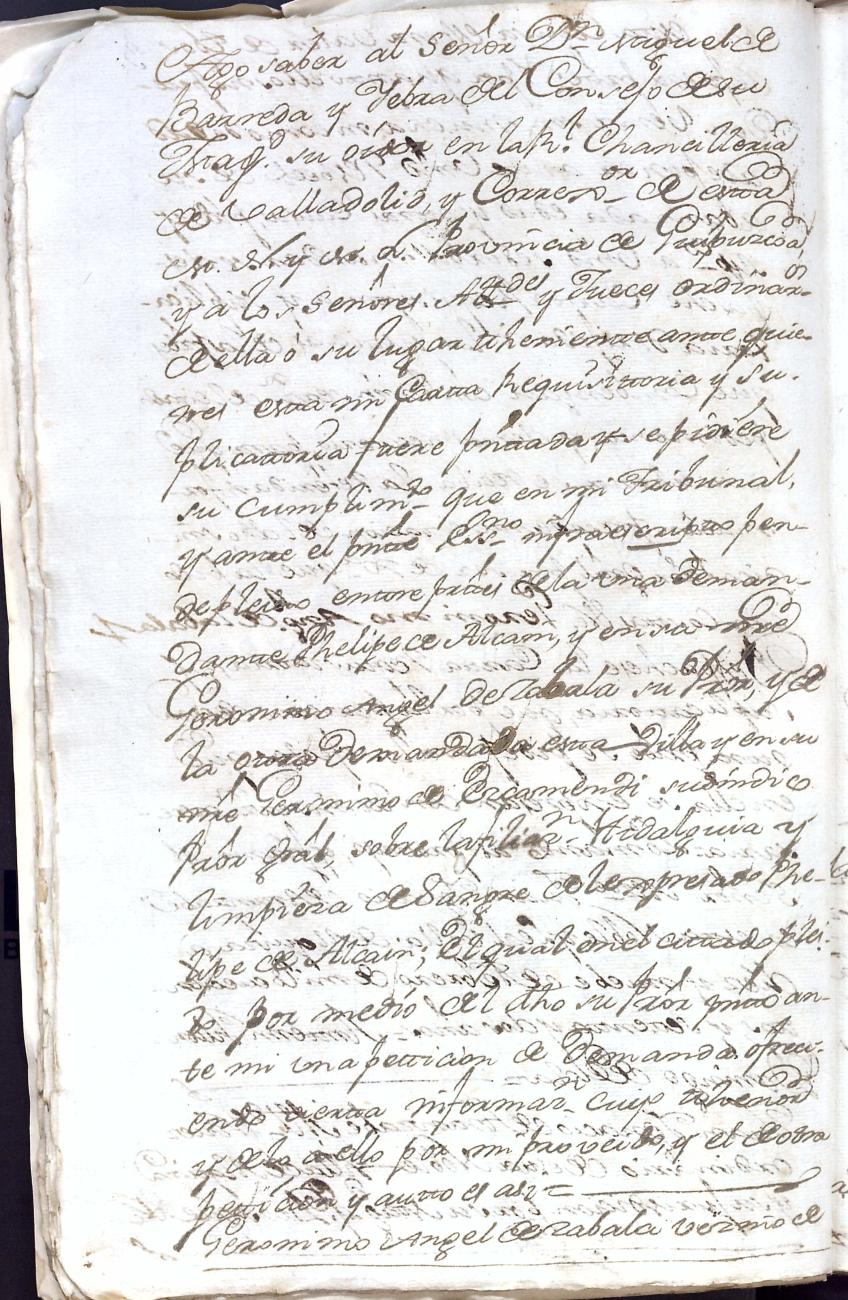 Ago saber al Señor Dn Miguel de
Barreda y Yebra, del Consejo de su
Magd. su oidor en la Rl. Chancilleria
de Valladolid, y Corregor. de esta
M. N. y M. L. Provincia de Guipuzcoa,
y a los Señores Alcdes y Jueces ordinars
de ella ó su lugar theniente ante quie-
nes esta mi Cartta Requisittoria y su-
plicattoria fuere pnttada y se pidiere
su cumplimto que en mi Tribunal,
y antte el pntte Essno infraescripto pen-
de pleito entre prtes de la una deman-
dante Phelipe de Alcain, y en su nre
Geronimo Angel de Zabala su Pror, y de
la otra Demandada esta Villa y en su
nre Geronimo de Ercamendi su sindico
Pror Gral sobre la filiazn Hidalguia y
limpieza de Sangre del expresado Phe-
lipe de Alcain; El qual en el cittado plei-
to por medio del dho su Pror pntto an-
te mi una petticion de Demanda ofreci-
endo cierta informazn cuyo thenor
y de lo a ello por mi proveido, y el de otra
petticion y autto es asi =
Geronimo Angel de Zabala vezino de